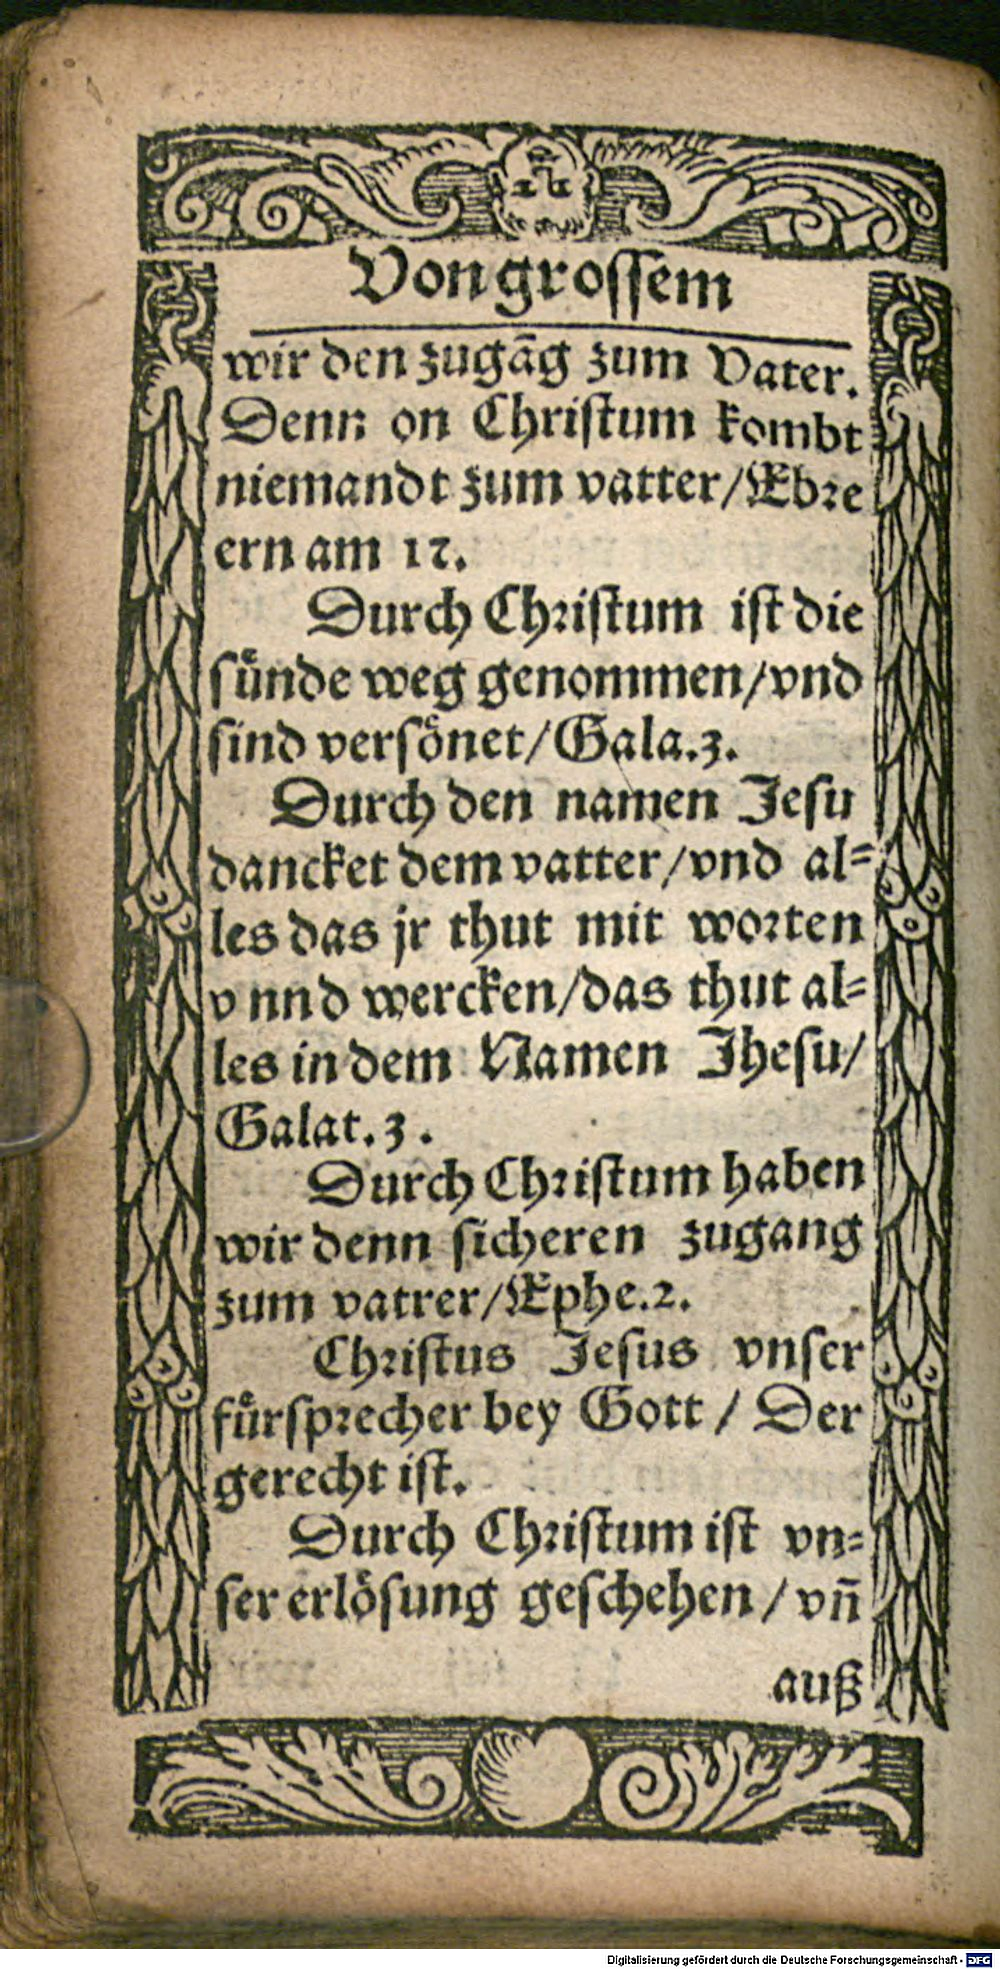 Von grossem
wir den zugāg zum Vater.
Denn on Christum kombt
niemandt zum vatter/Ebre
ern am 12.
Durch Christum ist die
suͤnde weg genommen/vnd
sind versoͤnet/Gala.3.
Durch den namen Jesu
dancket dem vatter/vnd al=
les das jr thut mit worten
v nnd wercken/das thut al=
les in dem Namen Jhesu/
Galat.3.
Durch Christum haben
wir denn sicheren zugang
zum vatrer/Ephe.2.
Christus Jesus vnser
fuͤrsprecher bey Gott / Der
gerecht ist.
Durch Christum ist vn=
ser erloͤsung geschehen / vn̄
auß
Digitalisierung gefördert durch die Deutsche Forschungsgemeinschaft - DFG